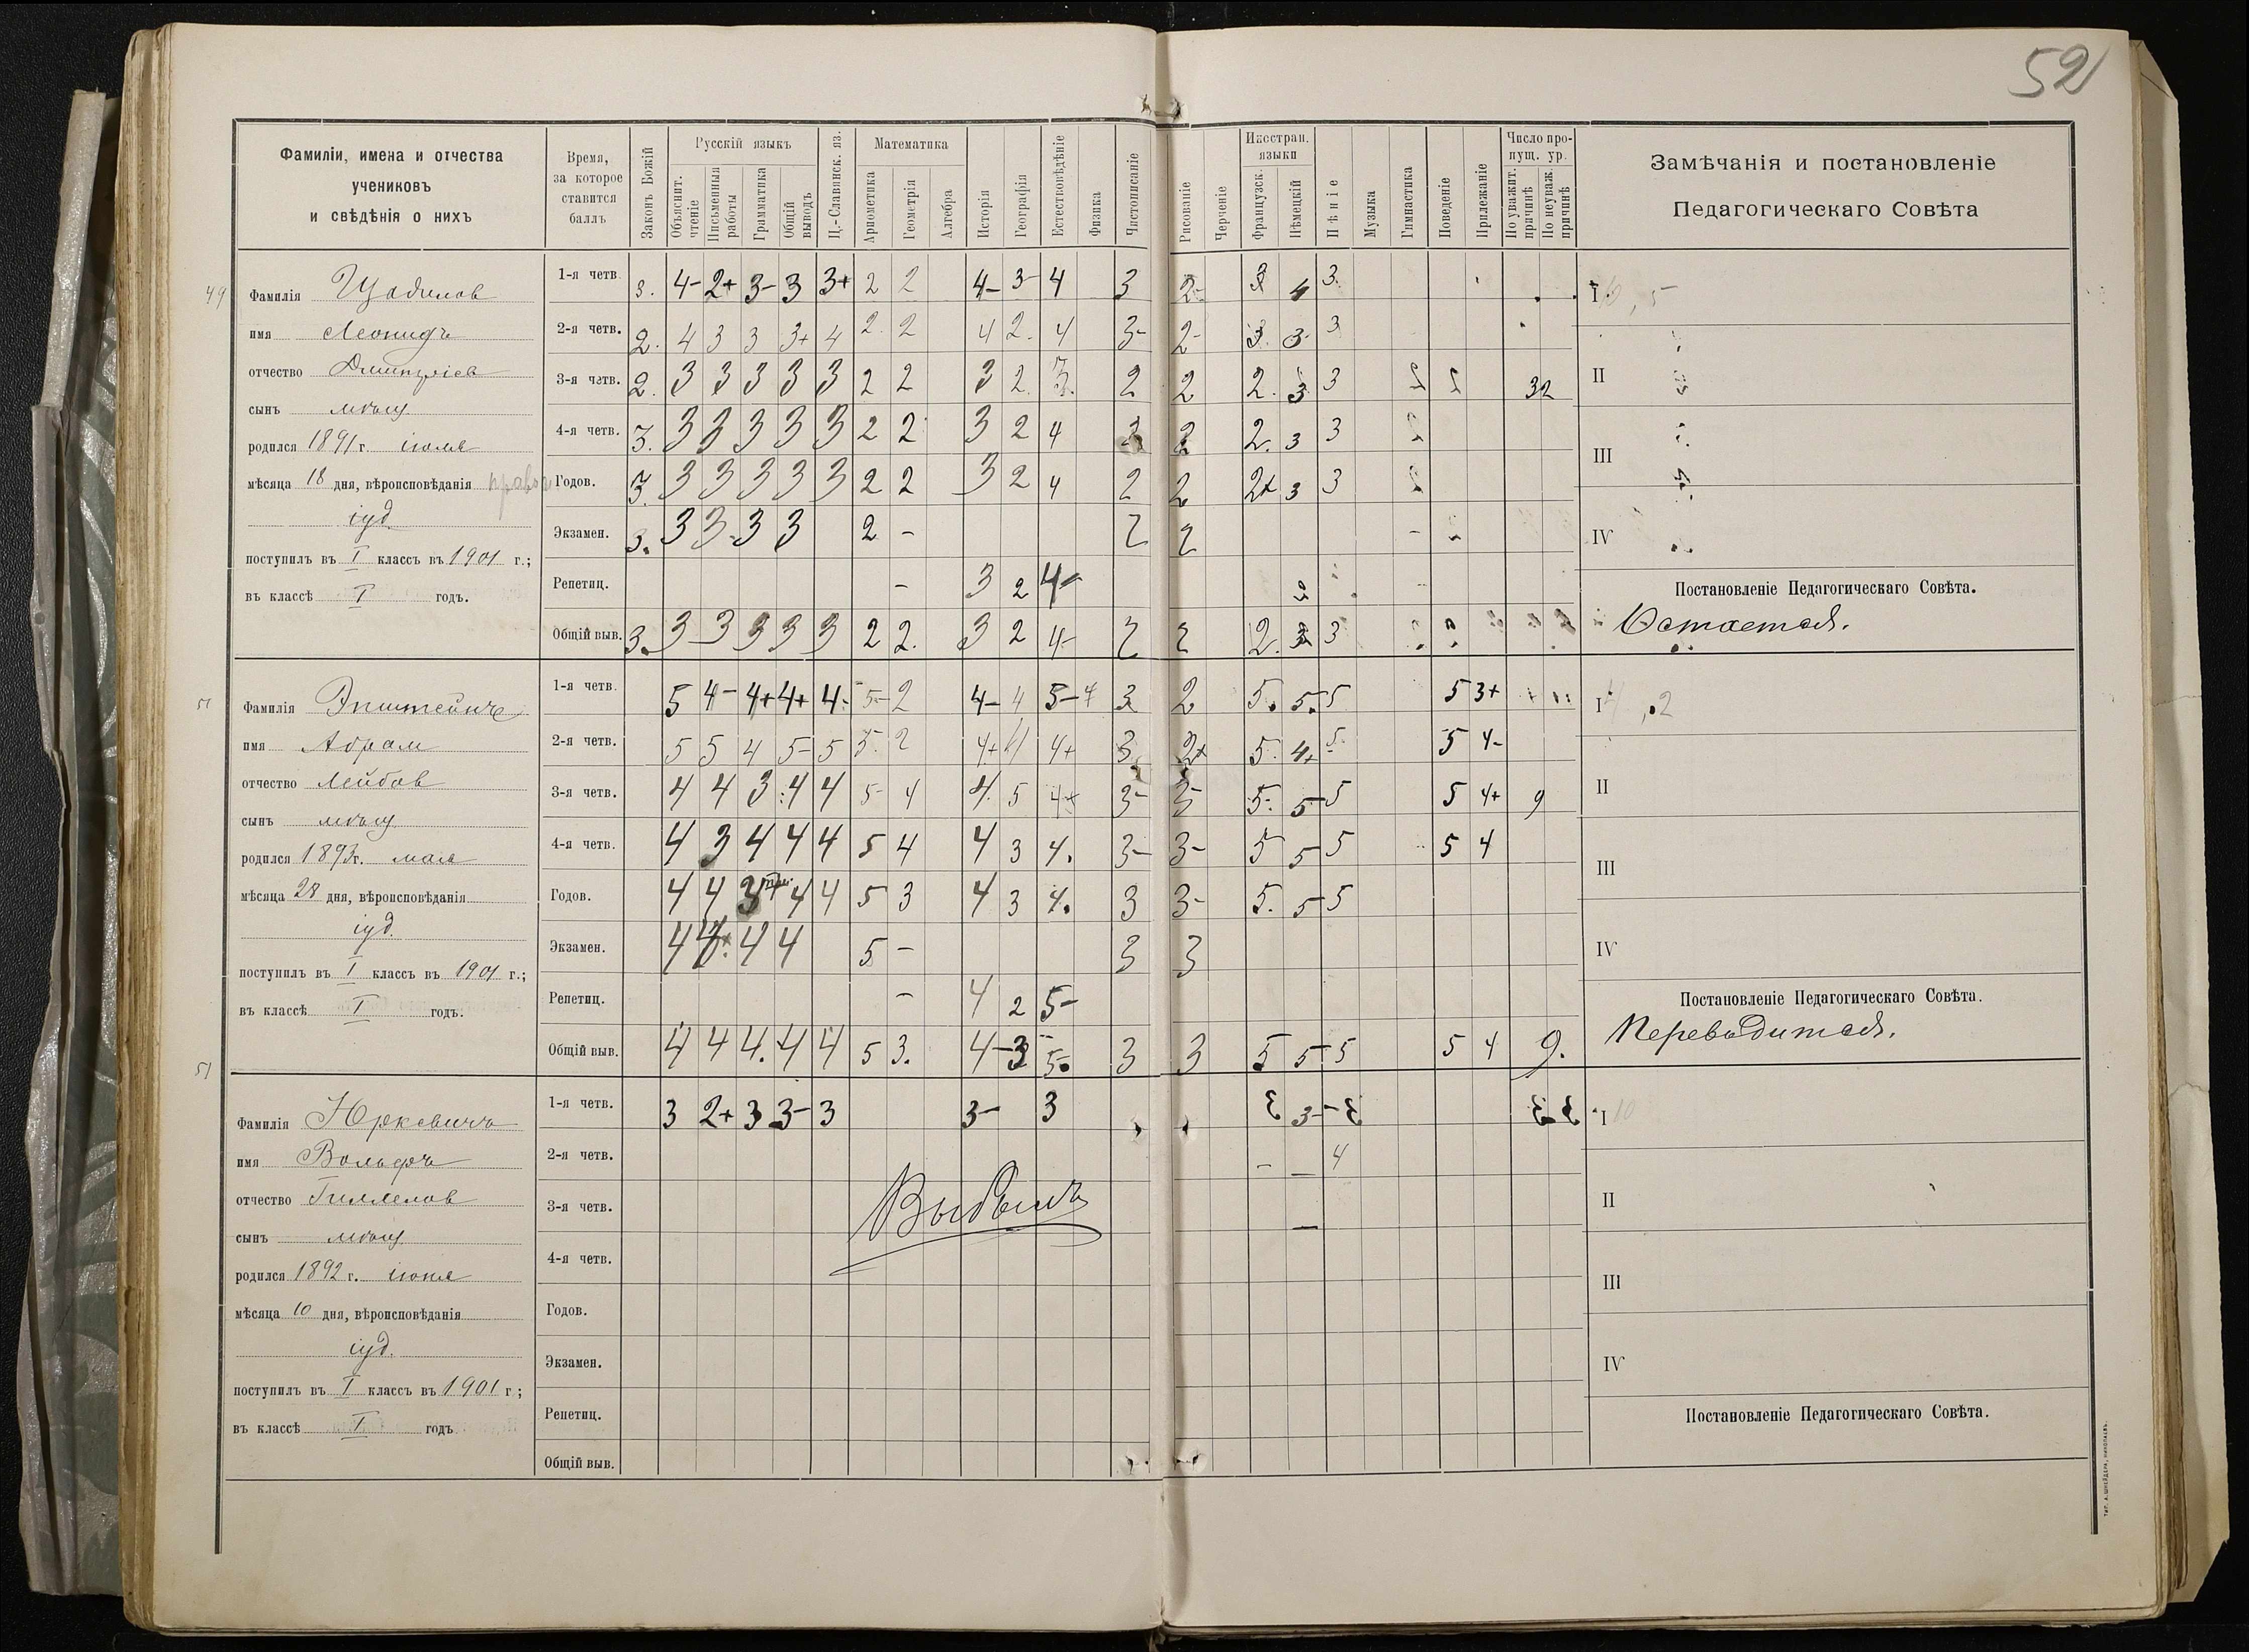 52
Фамиліи, имена и отчества
учениковъ
и свѣдѣнія о нихъ
Время,
за которое
ставится
баллъ
Законъ Божій
Русскій языкъ
Объяснит. чтеніе
Письменныя работы
Грамматика
Общій выводъ
Ц.-Славянск. яз.
Математика
Ариѳметика
Геометрія
Алгебра
Исторія
Географія
Естествовѣдѣніе
Физика
Чистописаніе
Рисованіе
Черченіе
Иностран. языки
Французск.
Нѣмецкій
Пѣніе
Музыка
Гимнастика
Поведеніе
Прилежаніе
Число пропущ. ур.
По уважит. причинѣ
По неуваж. причинѣ
Замѣчанія и постановленіе
Педагогическаго Совѣта
49
Фамилія Щадилов
имя Леонидъ
отчество Дмитріев
сынъ мѣщ.
родился 1891 г. іюля
мѣсяца 18 дня, вѣроисповѣданія
іуд.
поступилъ въ I классъ въ 1901 г.;
въ классѣ I годъ.
1-я четв. 3. 4- 2+ 3- 3 3+ 2 2 4- 3- 4 3 2- 3 4 3.
2-я четв. 2. 4 3 3 3+ 4 2. 2 4 2. 4 3- 2- 3. 3- 3
3-я четв. 2. 3 3 3 3 3 2 2 3 2. 3. 2 2 2. 3. 3 32
4-я четв. 3. 3 3 3 3 3 2 2 3 2 4 2 2. 3 3
Годов. 3. 3 3 3 3 3 2 2 3 2 4 2 2 2+ 3 3
Экзамен. 3. 3 3 3 3 2 - 2 2
Репетиц. - 3 2 4-
Общій выв. 3. 3 3 3 3 3 2 2. 3 2 4- 2 2 2. 3 3
I
II
III
IV
Постановленіе Педагогическаго Совѣта.
Остается.
51
Фамилія Эпштейнъ
имя Абрам
отчество Лейбов
сынъ мѣщ.
родился 1893 г. мая
мѣсяца 28 дня, вѣроисповѣданія
іуд.
поступилъ въ I классъ въ 1901 г.;
въ классѣ I годъ.
1-я четв. 5 4- 4+ 4+ 4- 5- 2 4- 4 5- 4 3 2 5. 5. 5 5 3+
2-я четв. 5 5 4 5- 5 5. 2 4+ 4 4+ 3 2+ 5. 4+ 5. 5 4-
3-я четв. 4 4 3 4 4 5- 4 4. 5 4+ 3- 3- 5. 5 5 5 4+ 9
4-я четв. 4 3 4 4 4 5 4 4 3 4. 3- 3- 5 5 5 5 4
Годов. 4 4 3 4 4 5 3 4 3 4. 3 3- 5. 5 5
Экзамен. 4 4 4 4 5 - 3 3
Репетиц. - 4 2 5-
Общій выв. 4 4 4. 4 4 5 3. 4- 3 5- 3 3 5 5 5 5 4 9.
I
II
III
IV
Постановленіе Педагогическаго Совѣта.
Переводится.
51
Фамилія Юркевичъ
имя Вольфъ
отчество Гиллелов
сынъ мѣщ.
родился 1892 г. іюня
мѣсяца 10 дня, вѣроисповѣданія
іуд.
поступилъ въ I классъ въ 1901 г;
въ классѣ I годъ
1-я четв. 3 2+ 3 3- 3 3- 3 3-
2-я четв. - - 4
3-я четв. Выбылъ
4-я четв.
Годов.
Экзамен.
Репетиц.
Общій выв.
I
II
III
IV
Постановленіе Педагогическаго Совѣта.